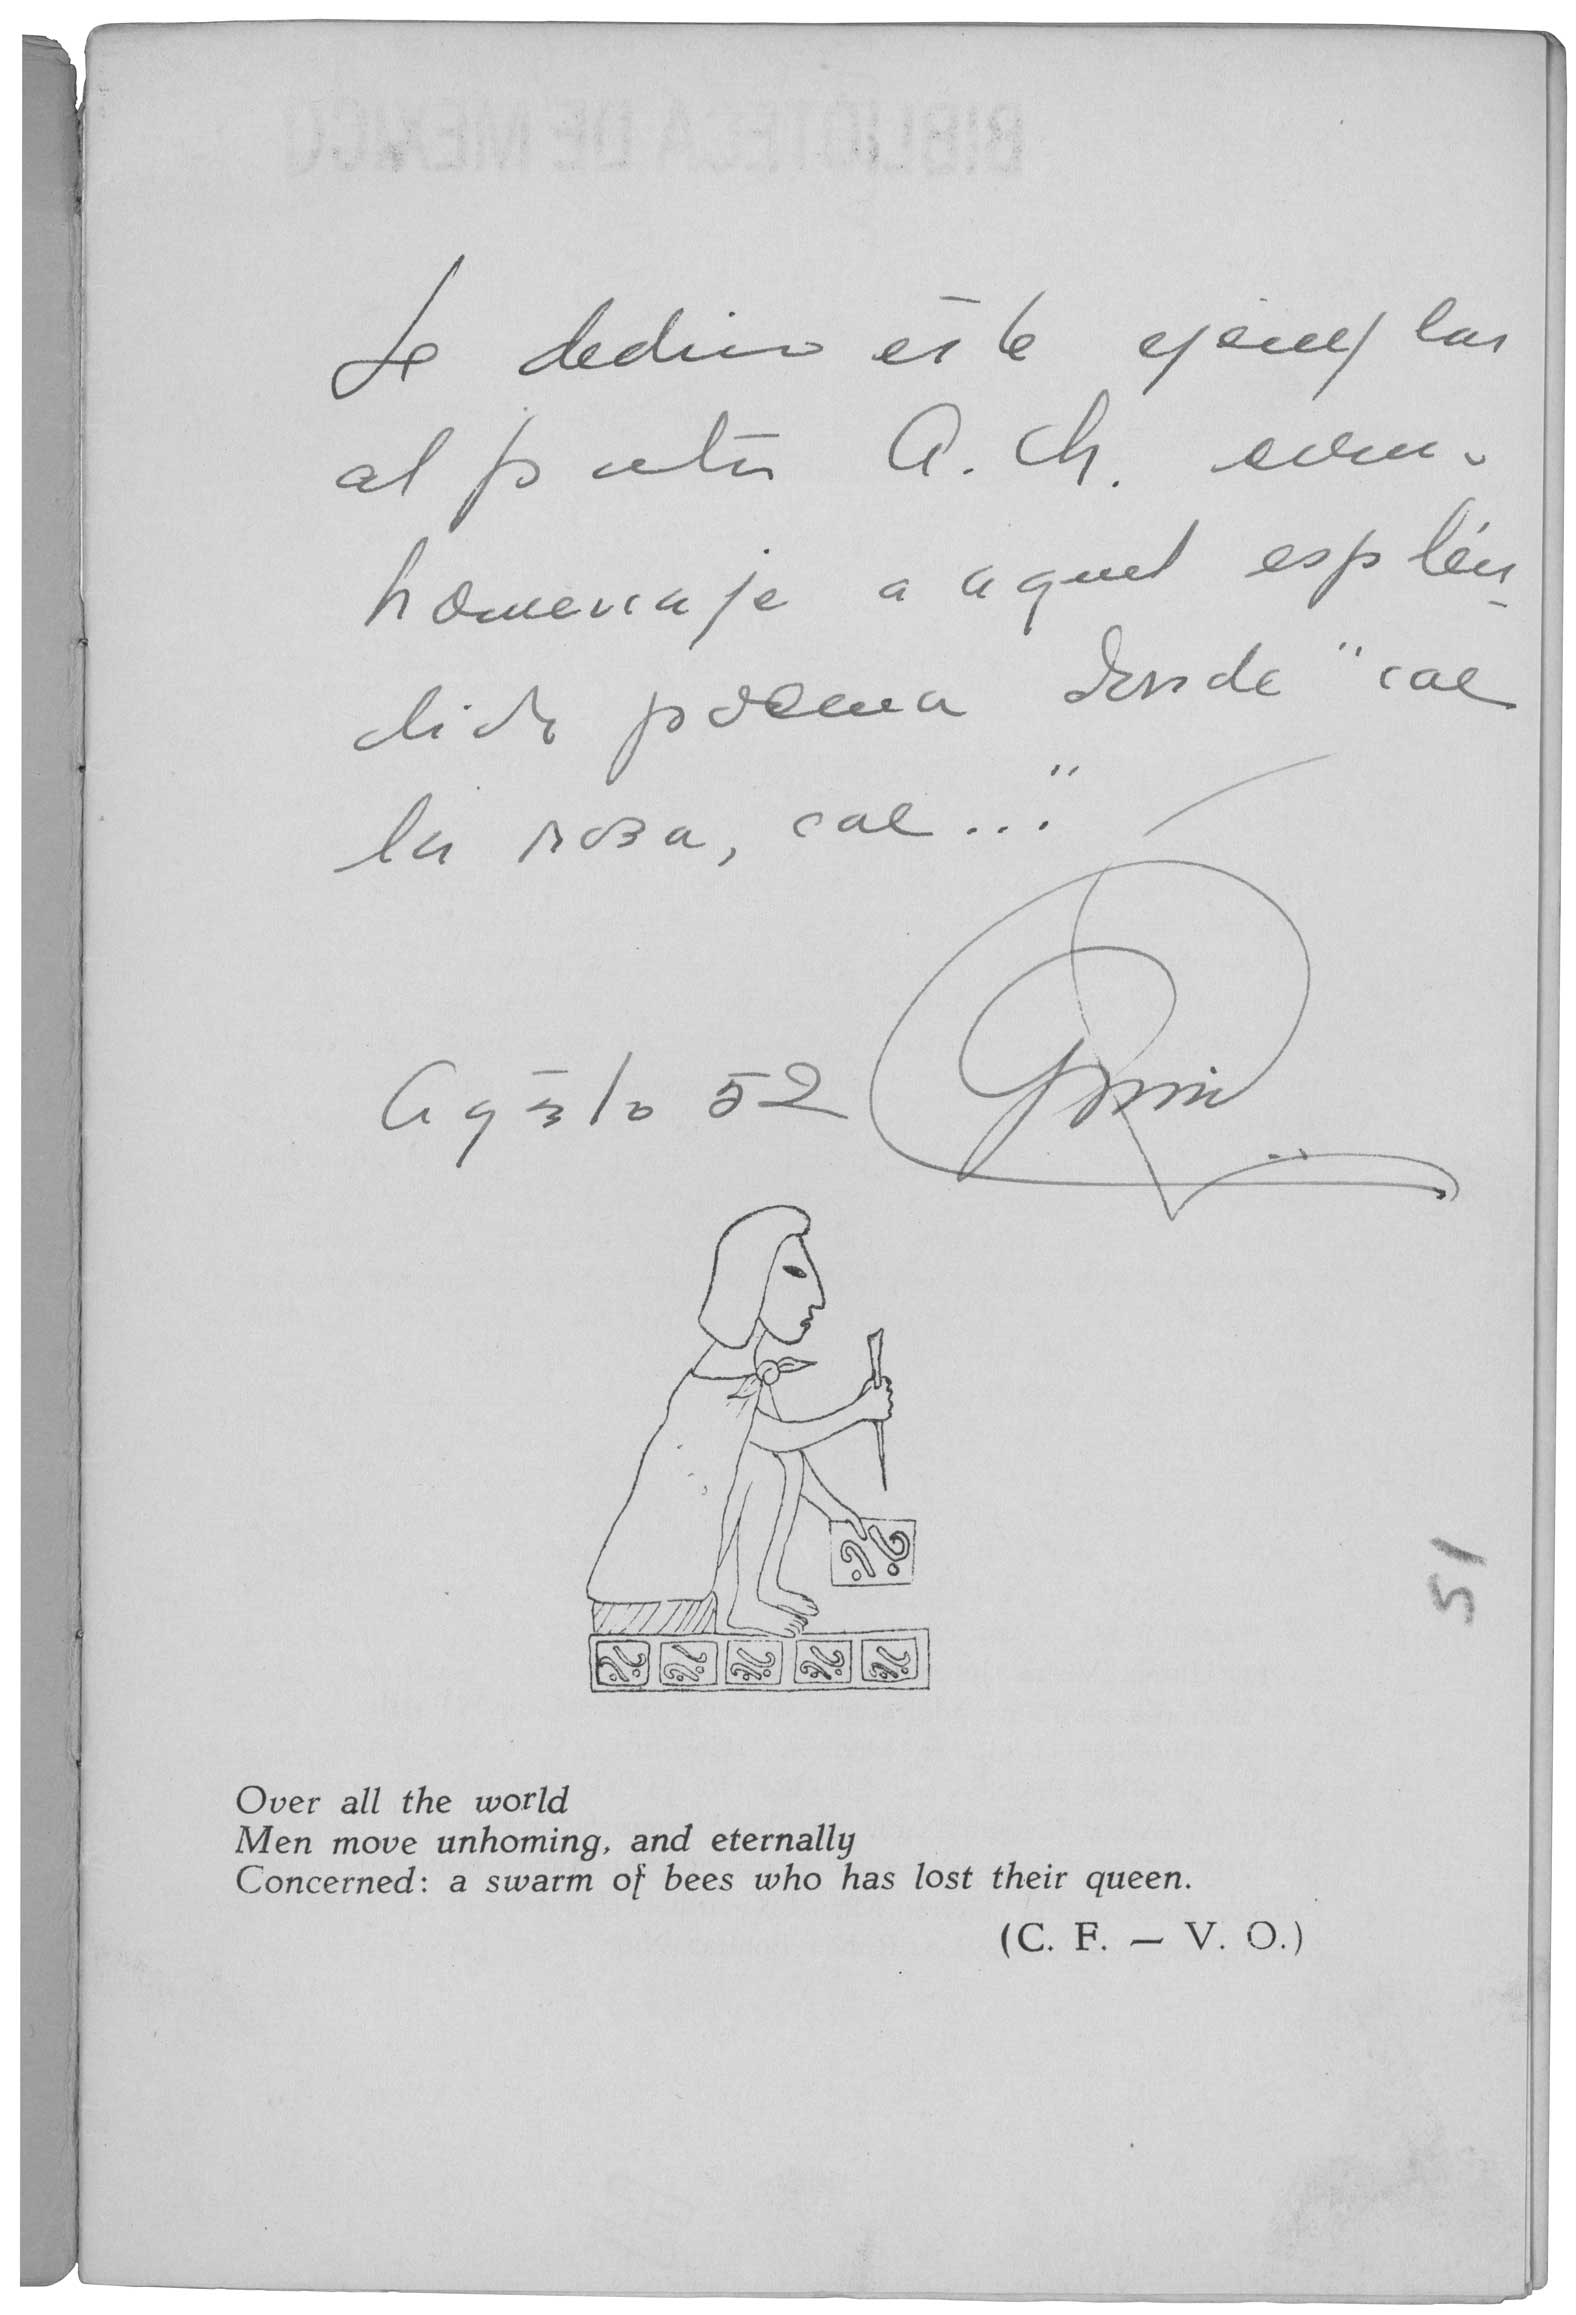 BIBLIOTECA DE MEXICO
Le dedico este ejemplar
al poeta A. Ch. como
homenaje a aquel esplén-
dido poema donde "cae
la rosa, cae..."
Agosto 52
51
Over all the world
Men move unhoming, and eternally
Concerned: a swarm of bees who has lost their queen.
(C. F. — V. O.)